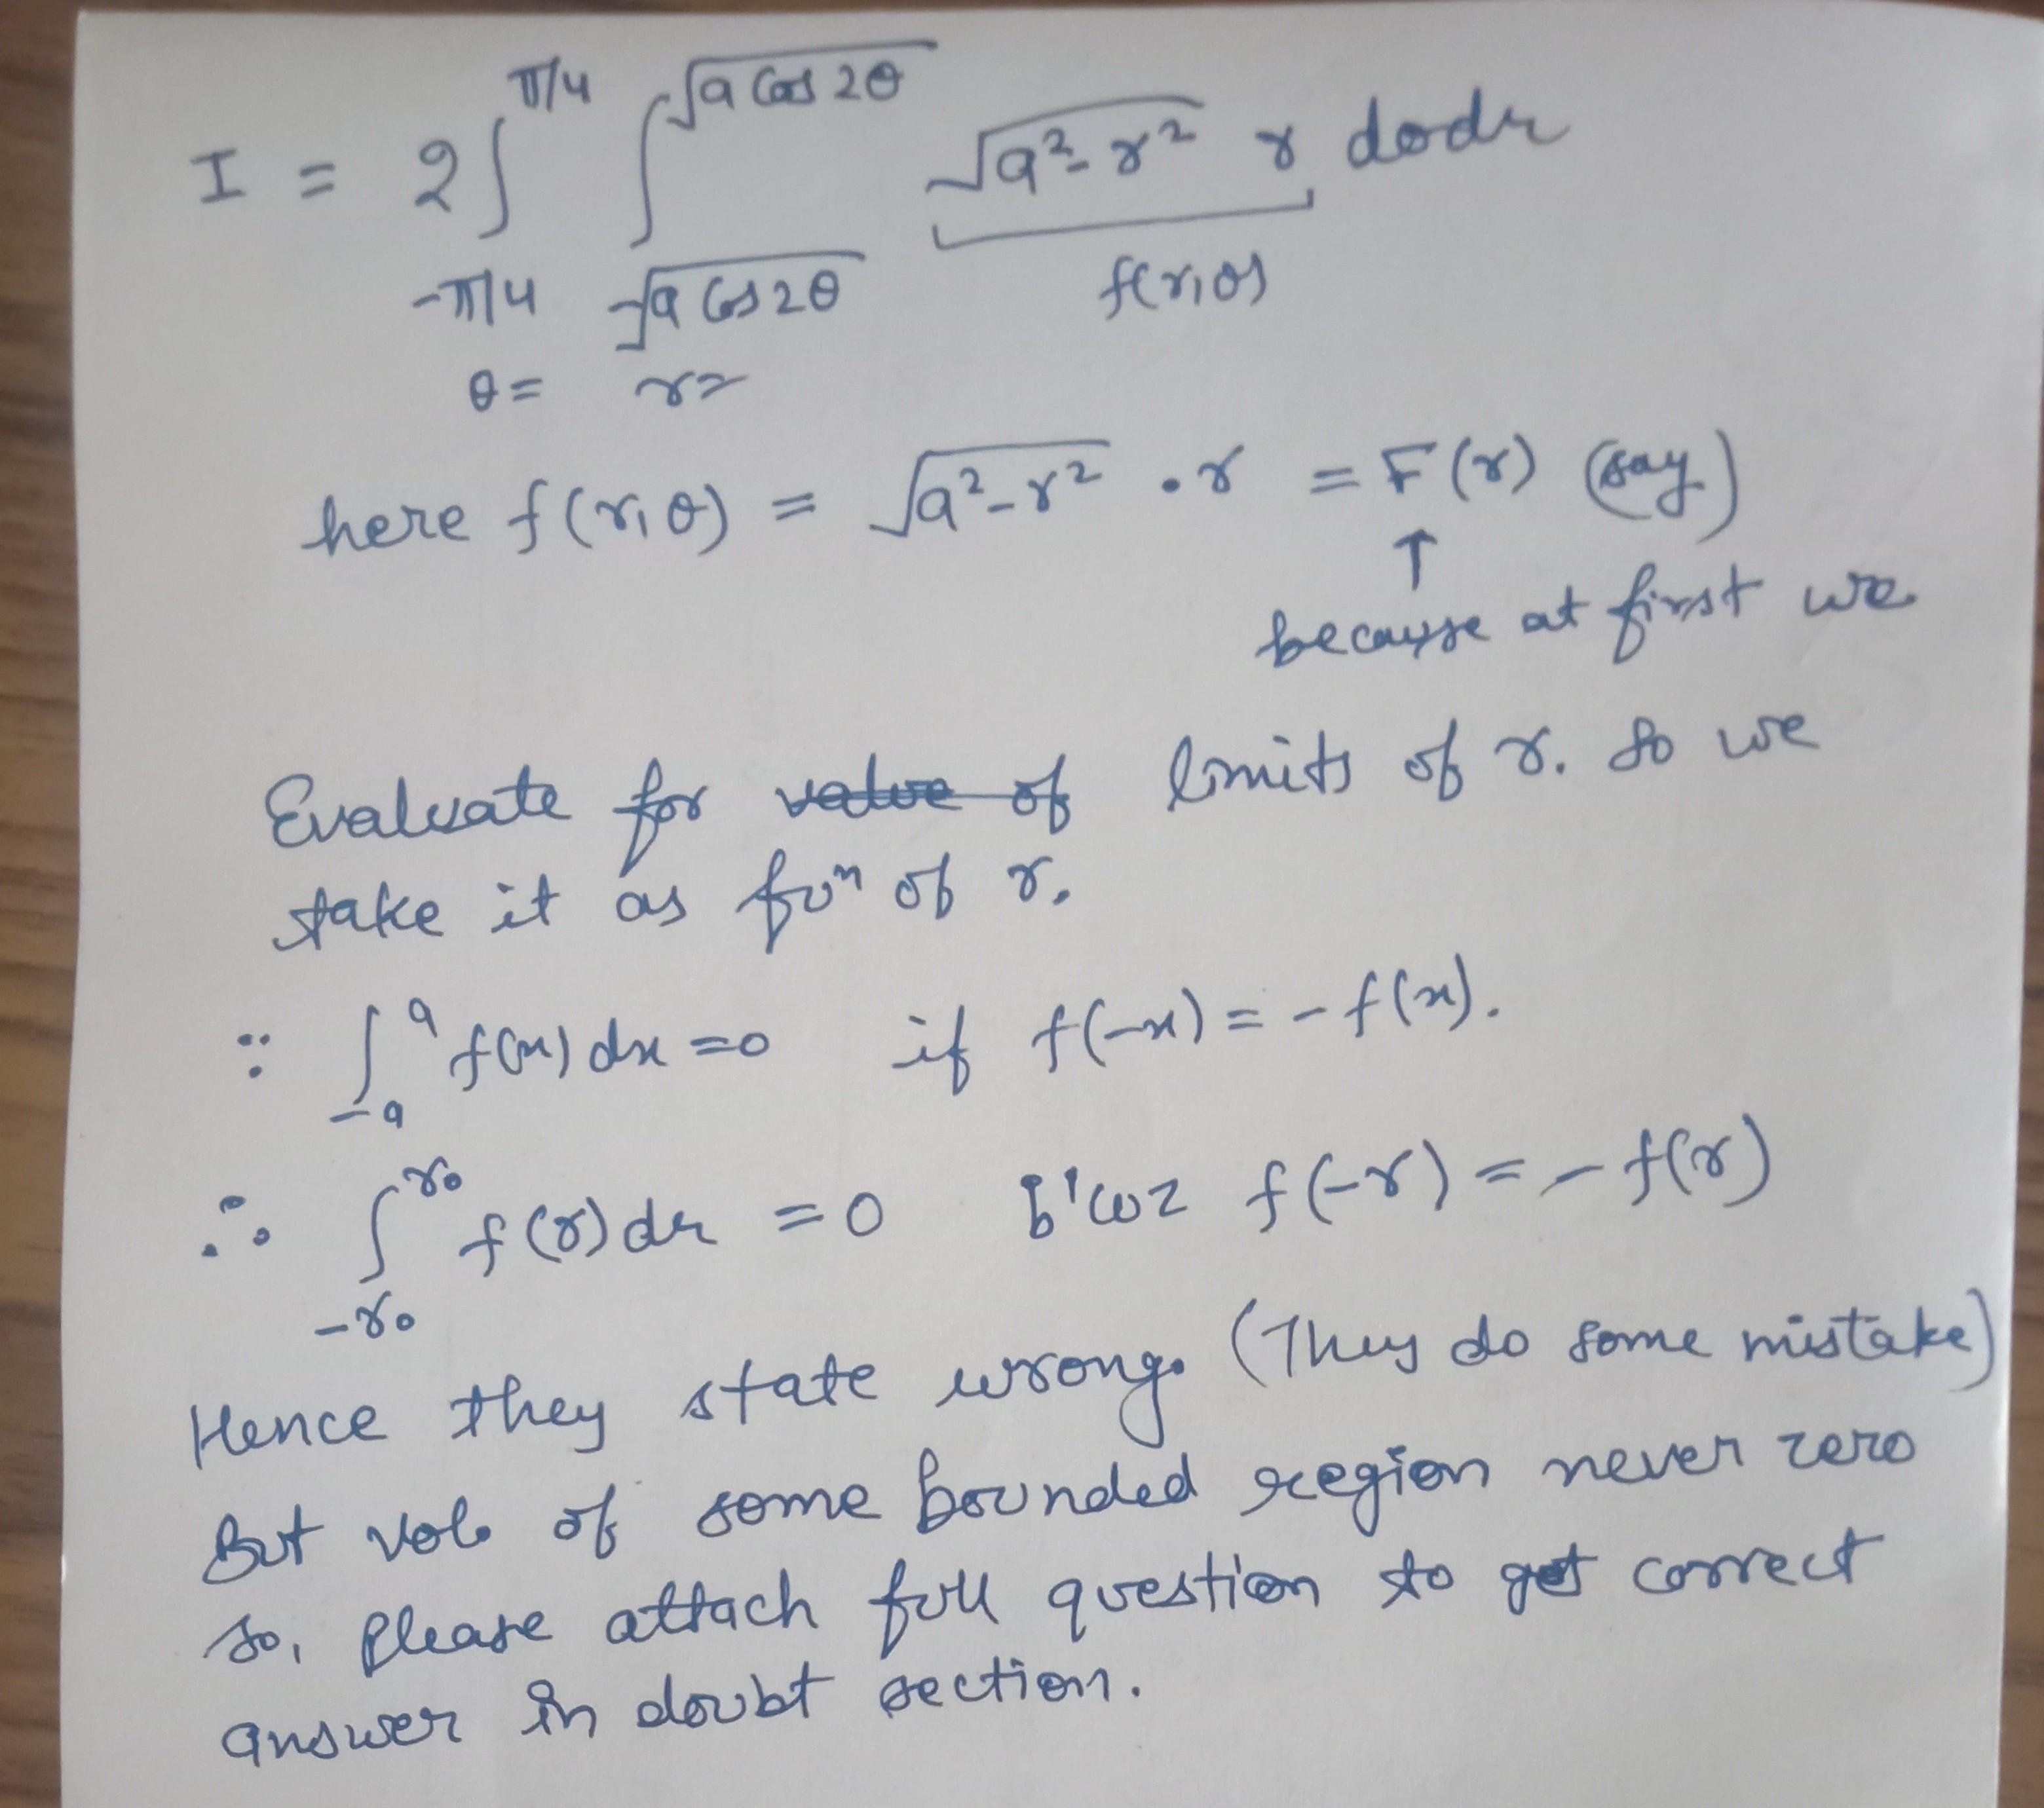 I = 2∫_{-π/4}^{π/4} ∫_{-√a Cos 2θ}^{√a Cos 2θ} √a²-r² r dθdr
θ= r=
f(r,θ)
here f(r,θ) = √a²-r² . r = F(r) (say)
↑
because at first we
Evaluate for value of limits of r. So we
take it as fuⁿ of r.
∵ ∫_{-a}^{a} f(x) dx = 0 if f(-x) = - f(x).
∴ ∫_{-r₀}^{r₀} f(r) dr = 0 b'coz f(-r) = - f(r)
Hence they state wrong. (They do some mistake)
But vol. of some bounded region never zero
so, Please attach full question to get correct
answer in doubt section.